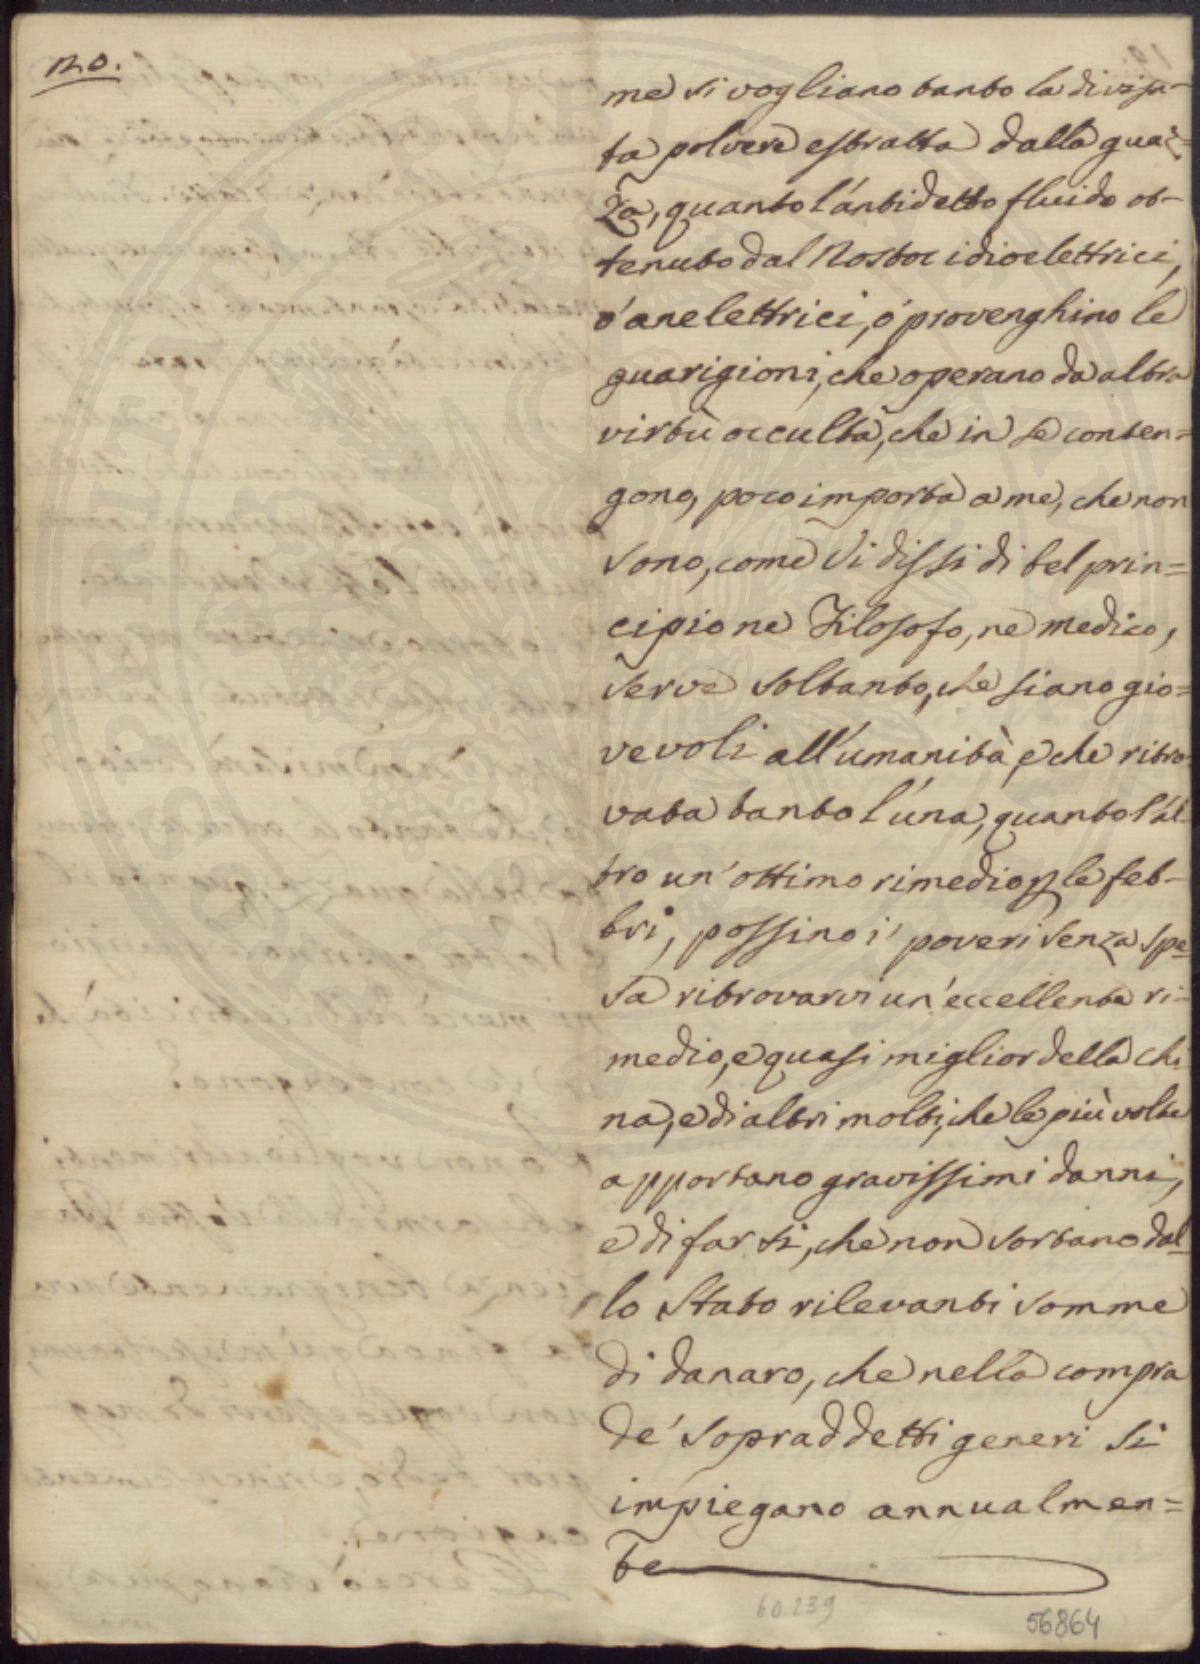 120.
me si vogliano tanto la divisa-
ta polvere estratta dalla guaz-
za, quanto l'antidetto fluido ot-
tenuto dal Nostoc idioelettrici,
o' anelettrici, o' provenghino le
guarigioni, che operano da altra
virtù occulta, che in se conten=
gono, poco importa a me, che non
sono, come Vi dissi di bel prin=
cipio ne Filosofo, ne medico,
serve soltanto, che siano gio=
vevoli all'umanità, e che ritro-
vata tanto l'una, quanto l'al-
tro un' ottimo rimedio p le feb-
bri, possino i' poveri senza spe
sa ritrovarvi un' eccellente ri-
medio, e quasi miglior della chi
na, e di altri molti, che le più volte
apportano gravissimi danni,
e di far si, che non sortano dal
lo Stato rilevanti somme
di danaro, che nella compra
de' sopraddetti generi si
impiegano annualmen=
te
60.239
56864